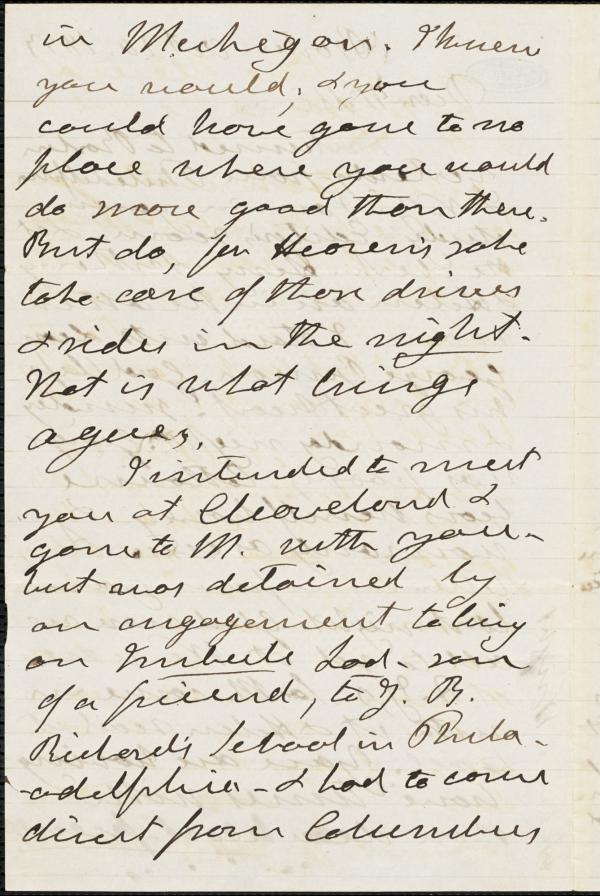 in Michigan. I knew
you would; & you
could have gone to no
place where you would
do more good than there.
But do, for Heaven's sake
take care of those drives
& rides in the night.
That is what brings
agues.
I intended to meet
you at Cleaveland &
gone to M. with you -
but was detained by
an engagement to bring
an Imbecile Lad - son
of a friend, to J. B.
Richard's School in Phila-
-adelphia - & had to come
direct from Columbus